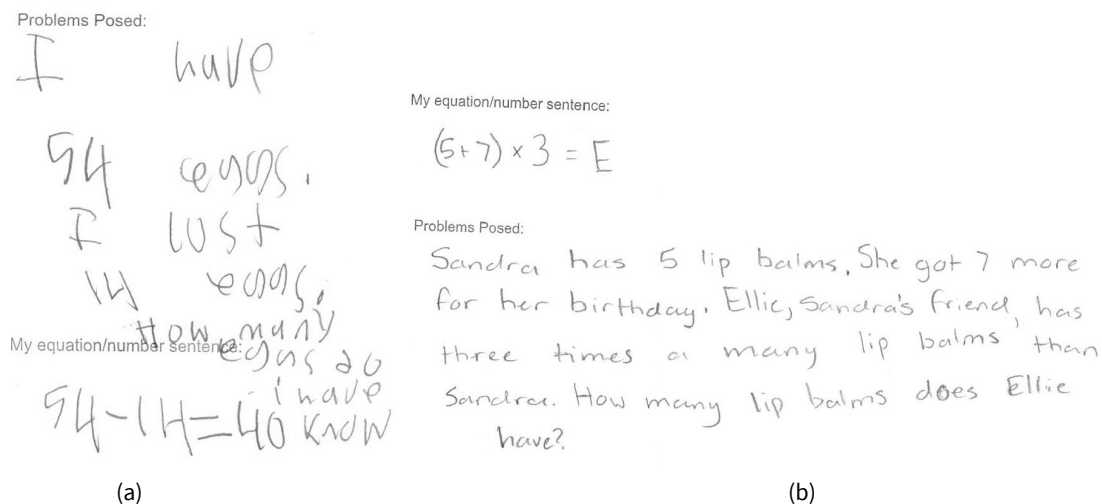 Problems Posed:
I have
54 eggs.
I lost
14 eggs.
How many
eggs do
i have
know
My equation/number sentence:
54-14=40
(a)
My equation/number sentence:
(5+7) × 3 = E
Problems Posed:
Sandra has 5 lip balms. She got 7 more
for her birthday. Ellie, Sandra's friend, has
three times a many lip balms than
Sandra. How many lip balms does Ellie
have?
(b)